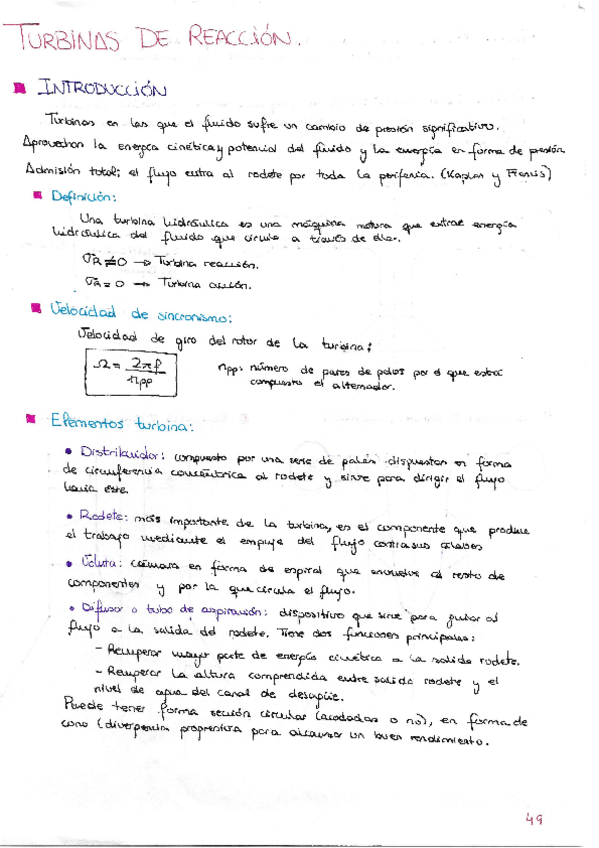 TURBINAS DE REACCIÓN.
INTRODUCCIÓN
Turbinas en las que el fluido sufre un cambio de presión significativo.
Aprovechan la energía cinética y potencial del fluido y la energía en forma de presión.
Admisión total; el flujo entra al rodete por toda la periferia. (Kaplan y Francis)
Definición:
Una turbina hidráulica es una máquina motora que extrae energía
hidráulica del fluido que circula a través de ella.
σR ≠ 0 → Turbina reacción.
σR = 0 → Turbina acción.
Velocidad de sincronismo:
Velocidad de giro del rotor de la turbina;
Ω = 2πf / npp
npp: número de pares de polos por el que está
compuesto el alternador.
Elementos turbina:
• Distribuidor: compuesto por una serie de palas dispuestas en forma
de circunferencia concéntrica al rodete y sirve para dirigir el flujo
hacia este.
• Rodete: más importante de la turbina, es el componente que produce
el trabajo mediante el empuje del flujo contra sus álabes
• Voluta: cámara en forma de espiral que envuelve al resto de
componentes y por la que circula el flujo.
• Difusor o tubo de aspiración: dispositivo que sirve para guiar al
flujo a la salida del rodete. Tiene dos funciones principales:
- Recuperar mayor parte de energía cinética a la salida rodete.
- Recuperar la altura comprendida entre salida rodete y el
nivel de agua del canal de desagüe.
Puede tener forma sección circular (acodados o no), en forma de
cono (divergencia progresiva para alcanzar un buen rendimiento.
49